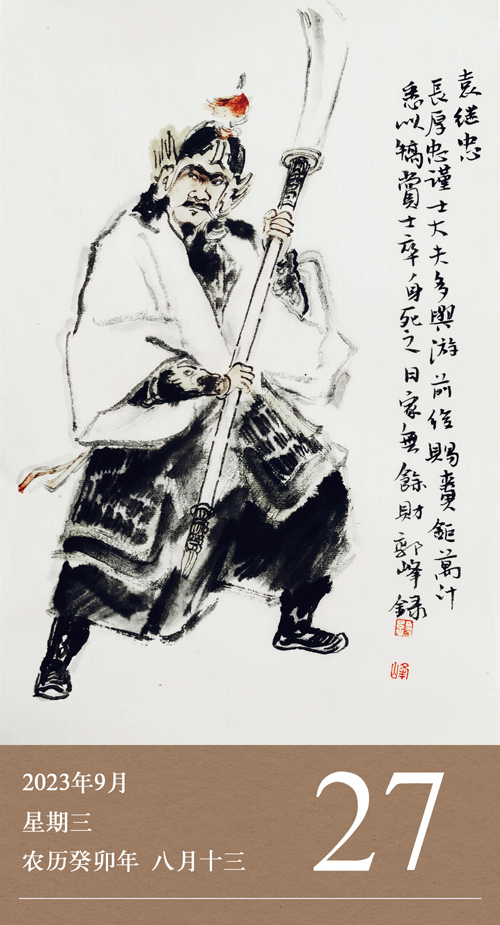 袁继忠
長厚忠謹士大夫多與游前後賜賚鉅萬計
悉以犒賞士卒身死之日家無餘財郭峰録
峰
2023年9月
星期三
农历癸卯年 八月十三
27